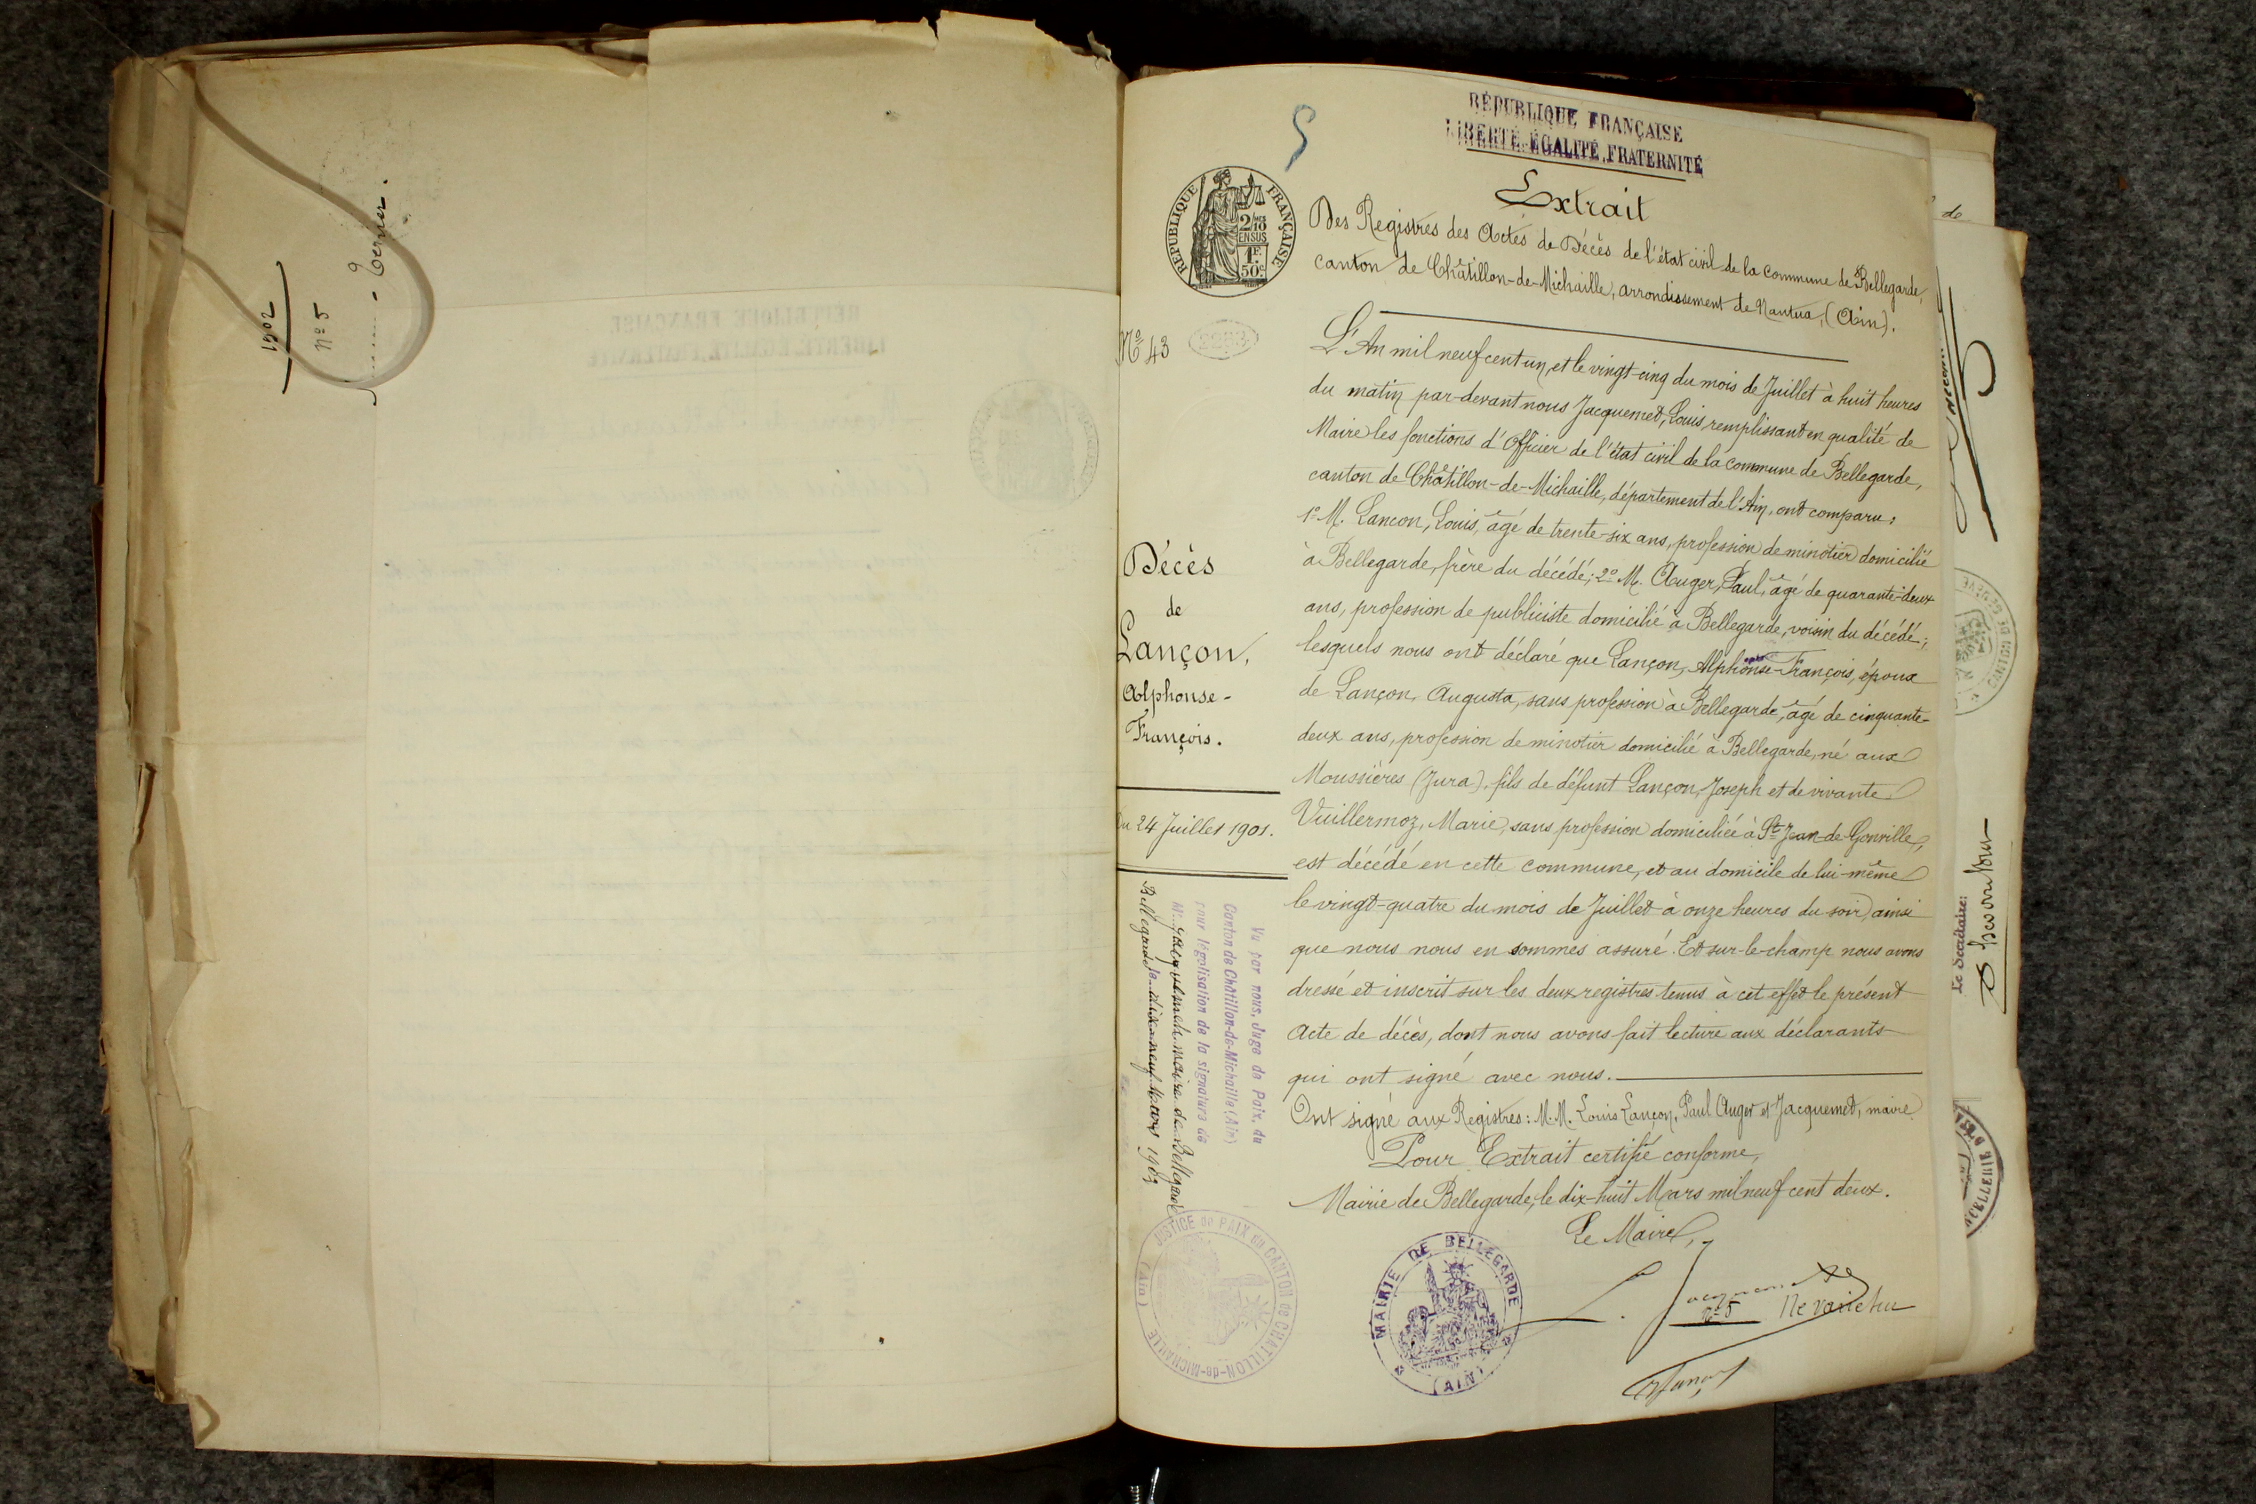 1902
n° 5
Verrier.
5
RÉPUBLIQUE FRANÇAISE
LIBERTÉ, ÉGALITÉ, FRATERNITÉ
Extrait
Des Registres des Actes de Décès de l'état civil de la commune de Bellegarde,
canton de Châtillon-de-Michaille, arrondissement de Nantua, (Ain).
RÉPUBLIQUE FRANÇAISE
2/10
EN SUS
1F
50c
N° 43
L'An mil neuf cent un, et le vingt-cinq du mois de Juillet à huit heures
du matin par-devant nous Jacquemet, Louis, remplissant en qualité de
Maire les fonctions d'Officier de l'état civil de la commune de Bellegarde,
canton de Châtillon-de-Michaille, département de l'Ain, ont comparu:
1° M. Lancon, Louis, âgé de trente-six ans, profession de minotier domicilié
à Bellegarde, frère du décédé; 2° M. Auger, Paul, âgé de quarante-deux
ans, profession de publiciste domicilié à Bellegarde, voisin du décédé;
lesquels nous ont déclaré que Lançon, Alphonse-François, époux
de Lançon, Augusta, sans profession à Bellegarde, âgé de cinquante-
deux ans, profession de minotier domicilié à Bellegarde, né aux
Moussières (Jura), fils de défunt Lançon, Joseph et de vivante
Vuillermoz, Marie, sans profession domiciliée à St Jean-de-Gonville,
est décédé en cette commune, et au domicile de lui-même
le vingt-quatre du mois de Juillet à onze heures du soir, ainsi
que nous nous en sommes assuré. Et sur-le-champ nous avons
dressé et inscrit sur les deux registres tenus à cet effet le présent
acte de décès, dont nous avons fait lecture aux déclarants
qui ont signé avec nous.
Ont signé aux Registres: M.M. Louis Lançon, Paul Auger et Jacquemet, maire
Pour Extrait certifié conforme,
Mairie de Bellegarde, le dix-huit Mars mil neuf cent deux.
Le Maire,
L. Jacquemet
n° 5 Ne varietur
Décès
de
Lançon,
Alphonse-
François.
Du 24 Juillet 1901.
Vu par nous, Juge de Paix, du
Canton de Châtillon-de-Michaille (Ain)
pour légalisation de la signature de
M. Jacquemet, maire de Bellegarde
Bellegarde le dix-neuf Mars 1902
JUSTICE de PAIX du CANTON de CHATILLON-de-MICHAILLE (Ain)
MAIRIE DE BELLEGARDE
(AIN)
de
Le Secrétaire: